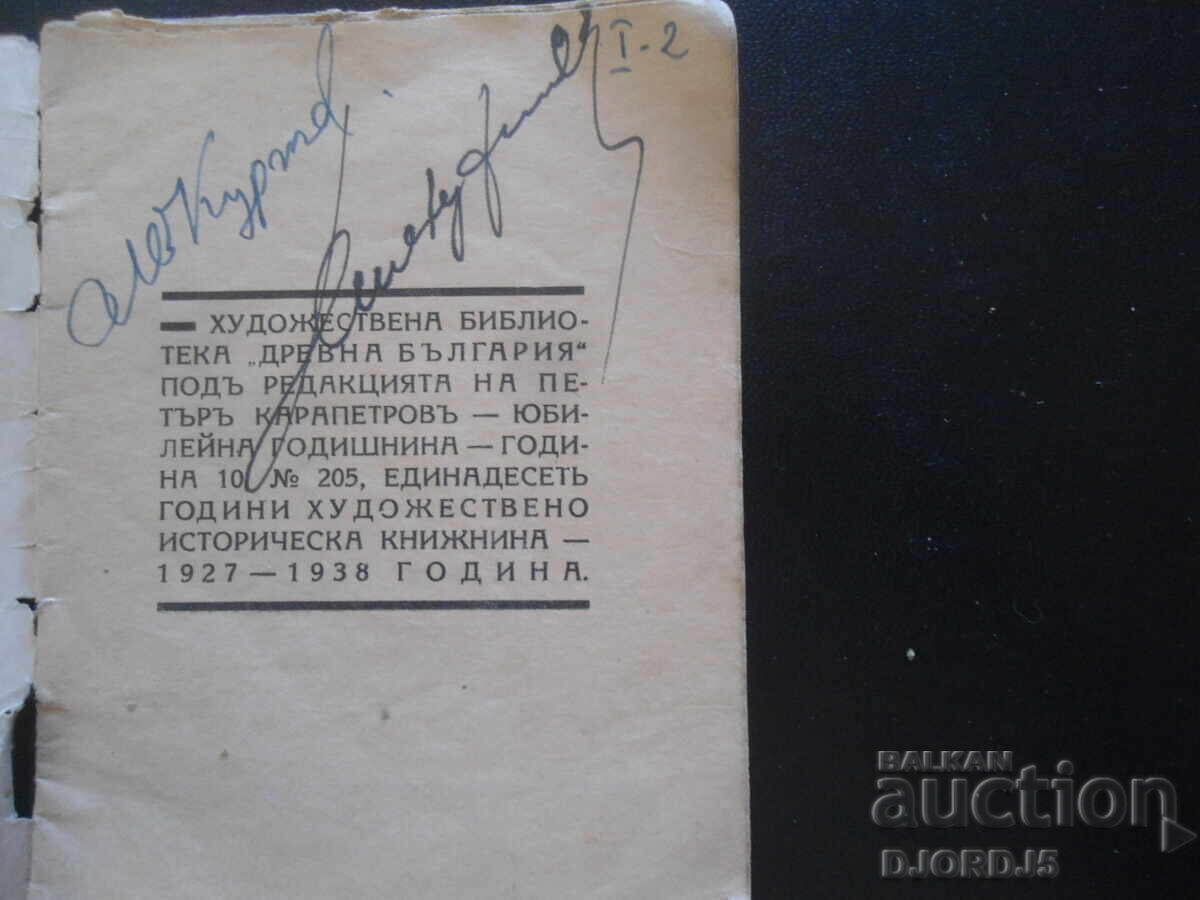 I-2
ХУДОЖЕСТВЕНА БИБЛИО-
ТЕКА „ДРЕВНА БЪЛГАРИЯ“
ПОДЪ РЕДАКЦИЯТА НА ПЕ-
ТЪРЪ КАРАПЕТРОВЪ — ЮБИ-
ЛЕЙНА ГОДИШНИНА — ГОДИ-
НА 10 № 205, ЕДИНАДЕСЕТЬ
ГОДИНИ ХУДОЖЕСТВЕНО
ИСТОРИЧЕСКА КНИЖНИНА —
1927 — 1938 ГОДИНА.
BALKAN
auction
DJORDJ5